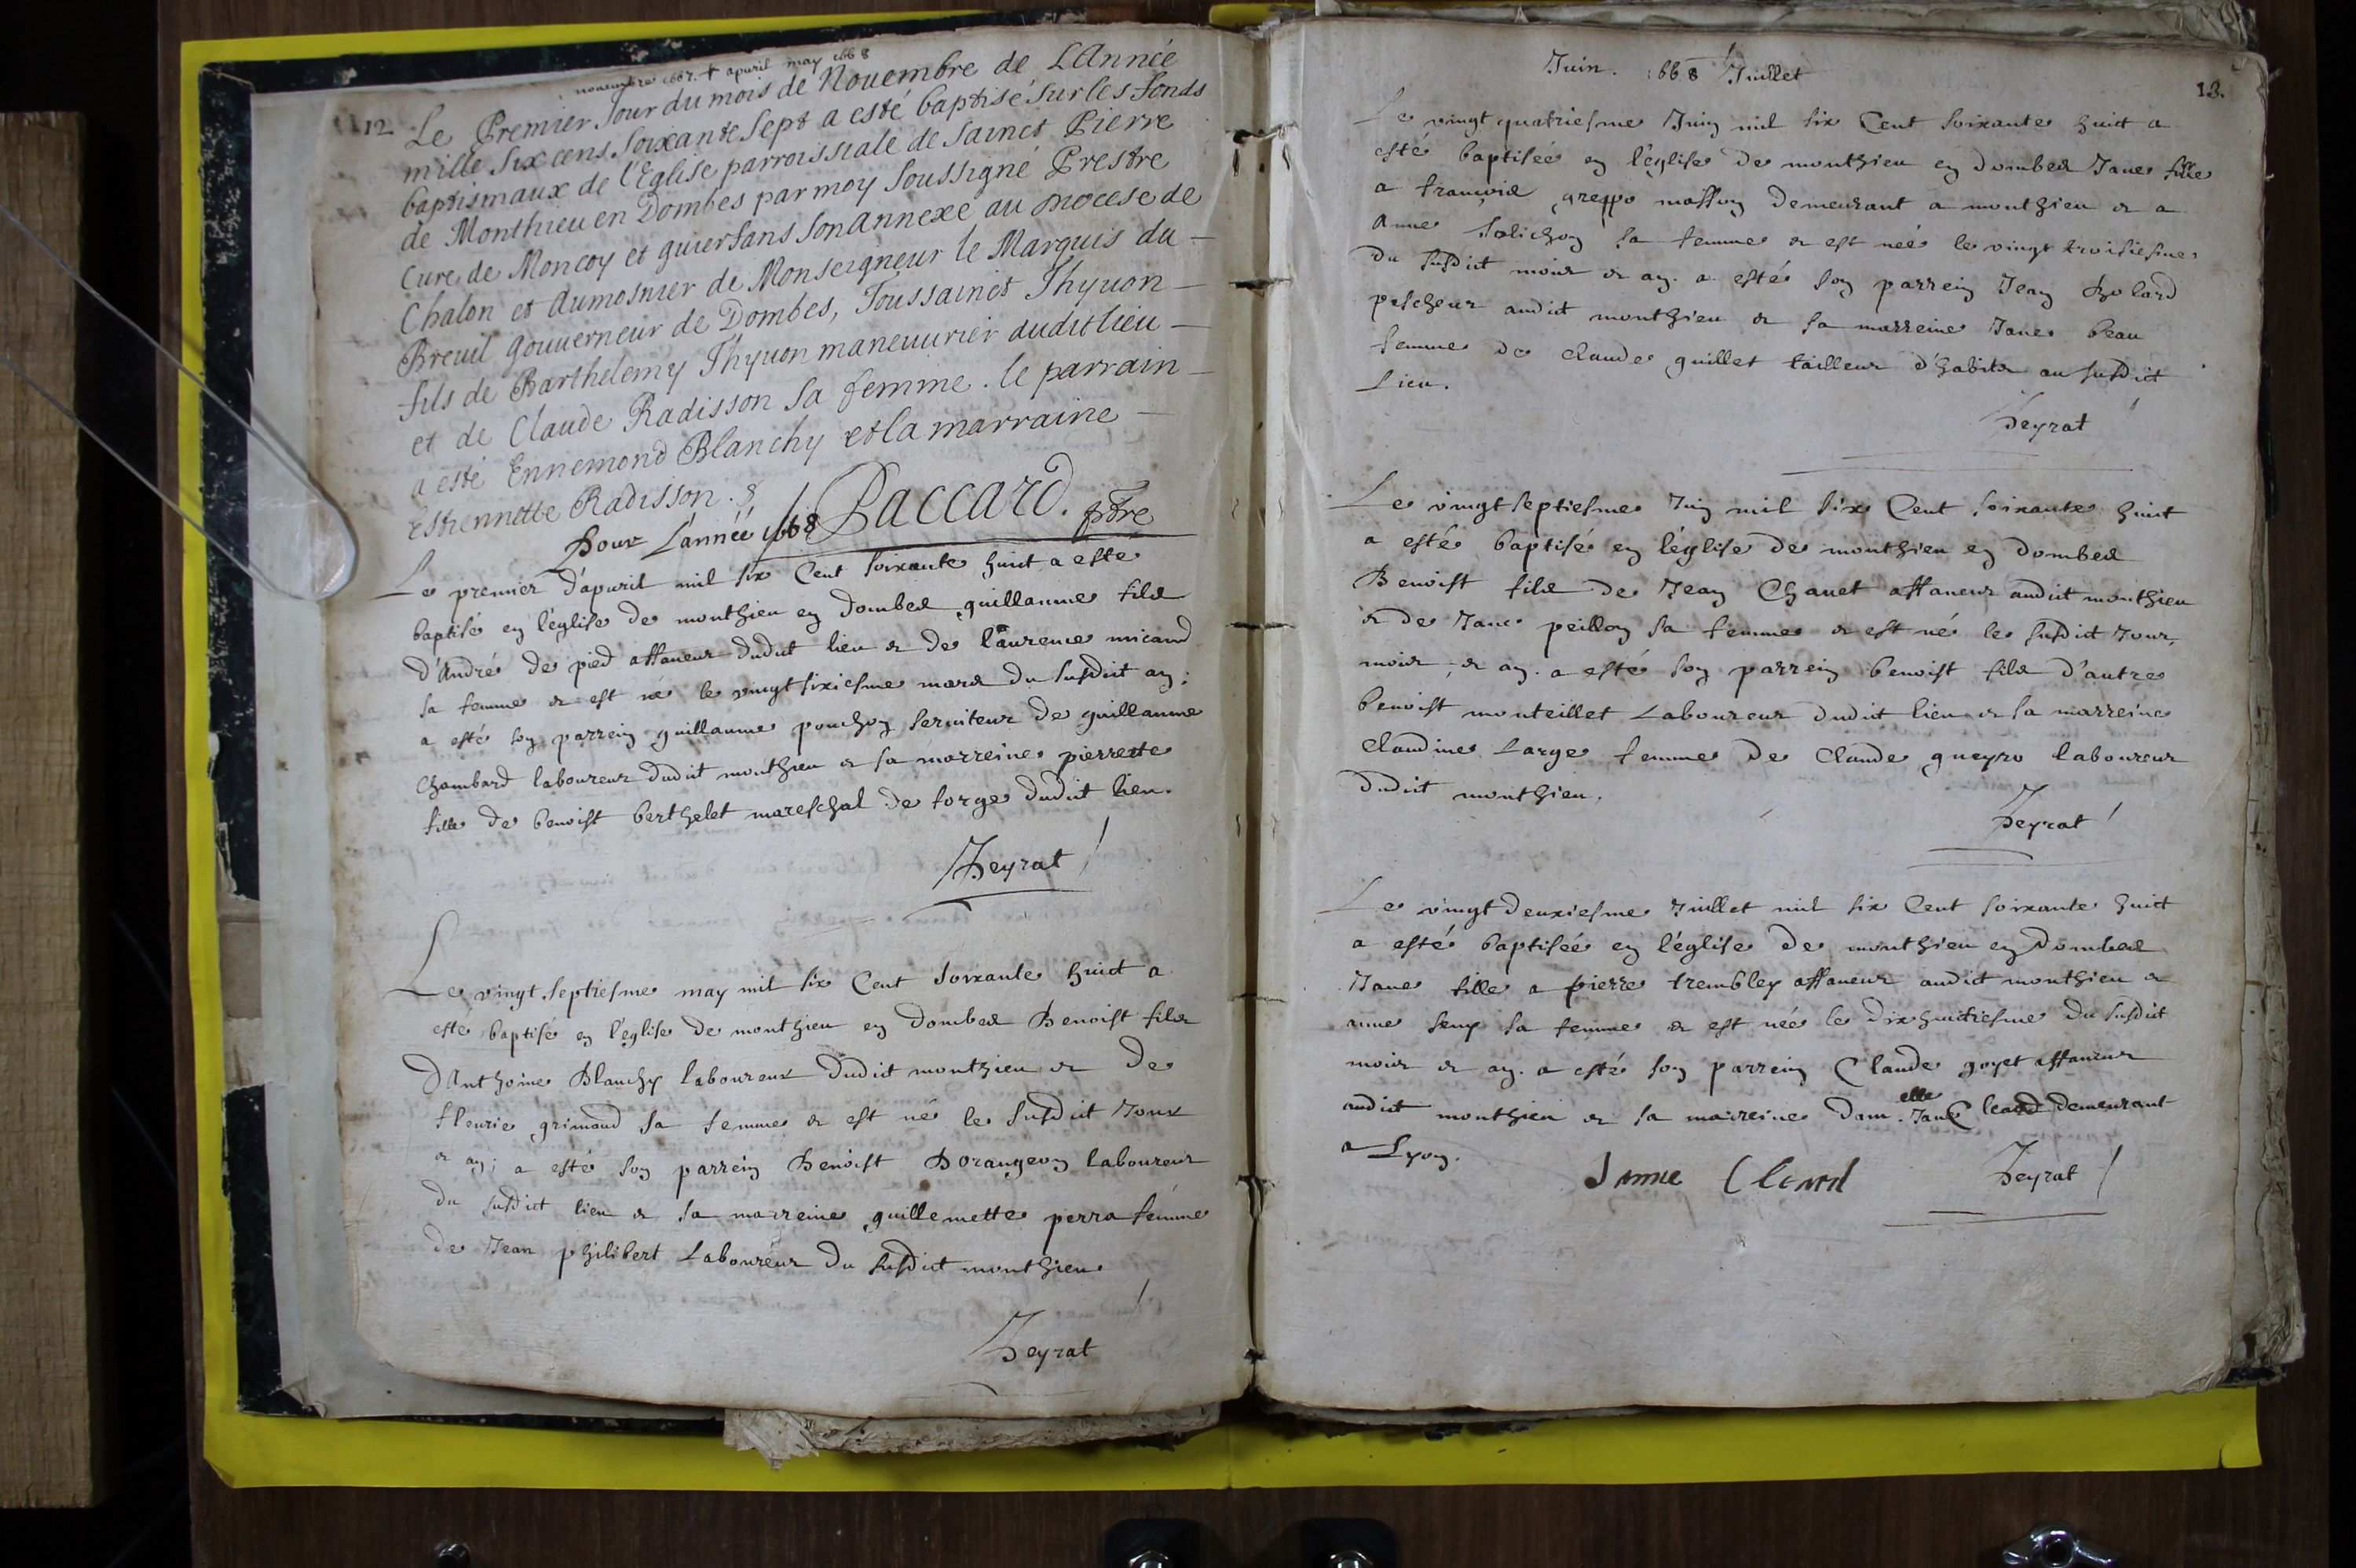 nouembre 1667. + apuril may 1668
12
Le Premier Jour du mois de Nouembre de LAnnée
mille Six cens Soixante Sept a esté baptisé sur les fonds
baptismaux de l'Eglise parroissiale de Sainct Pierre
de Monthieu en Dombes par moy Soussigné Prestre
Curé de Moncoy et guiersans Son annexe au Diocese de
Chalon et Aumosnier de Monseigneur le Marquis du -
Breuil gouuerneur de Dombes, Toussainct Thyuon -
fils de Barthelemy Thyuon maneuurier dudit lieu -
et de Claude Radisson Sa femme. le parrain -
a esté Ennemond Blanchy et la marraine -
Estiennette Radisson. Baccard. pbre
Pour L'année 1668
Le premier d'apuril mil six Cent soixante huict a esté
baptisé en l'église de monthieu en dombes guillaume fils
d'André de pied affaneur dudit lieu & de laurence micaud
sa femme & est né le vingt sixiesme mars du susdit an;
a esté son parrein guillaume ponchon seruiteur de guillaume
Chambard laboureur dudit monthieu & sa marreine pierrette
fille de benoist berthelet mareschal de forge dudit lieu.
Peyrat
Le vingt septiesme may mil six Cent soixante huict a
esté baptisé en l'église de monthieu en dombes Benoist fils
dAnthoine Blanchy laboureur dudict monthieu & de
fleurie grimaud sa femme & est né le susdit Jour
& an; a esté son parrein Benoist Dorangeon laboureur
du susdict lieu & sa marreine guillemette perra femme
de Jean philibert Laboureur du susdict monthieu
Peyrat
Juin. 1668 Juillet
13.
Le vingt quatriesme Juin mil six Cent soixante huict a
esté baptisée en l'église de monthieu en dombes Jane fille
a françois greppo masson demeurant a monthieu & a
Anne Salichon sa femme & est née le vingt troisiesme
du susdict mois & an. a esté son parrein Jean Bolard
pescheur audict monthieu & sa marreine Jane beau
femme de claude guillet tailleur d'habits au susdict
Lieu.
Peyrat
Le vingt septiesme Juin mil six Cent soixante huict
a esté baptisé en l'église de monthieu en dombes
Benoist fils de Jean Chanet affaneur audict monthieu
& de Jane peillon sa femme & est né le susdict Jour,
mois, & an. a esté son parrein benoist fils d'autre
benoist monteillet Laboureur dudit lieu & sa marreine
claudine Large femme de Claude gueyro laboureur
dudict monthieu.
Peyrat
Le vingt deuxiesme Juillet mil six Cent soixante huict
a esté baptisée en l'église de monthieu en dombes
Jane fille a pierre trembley affaneur audict monthieu &
anne seny sa femme & est née le dix huictiesme du susdit
mois & an. a esté son parrein Claude goyet affaneur
audict monthieu & sa marreine Dam.elle Jane Cleard demeurant
a Lyon.
Janne Cleard Peyrat